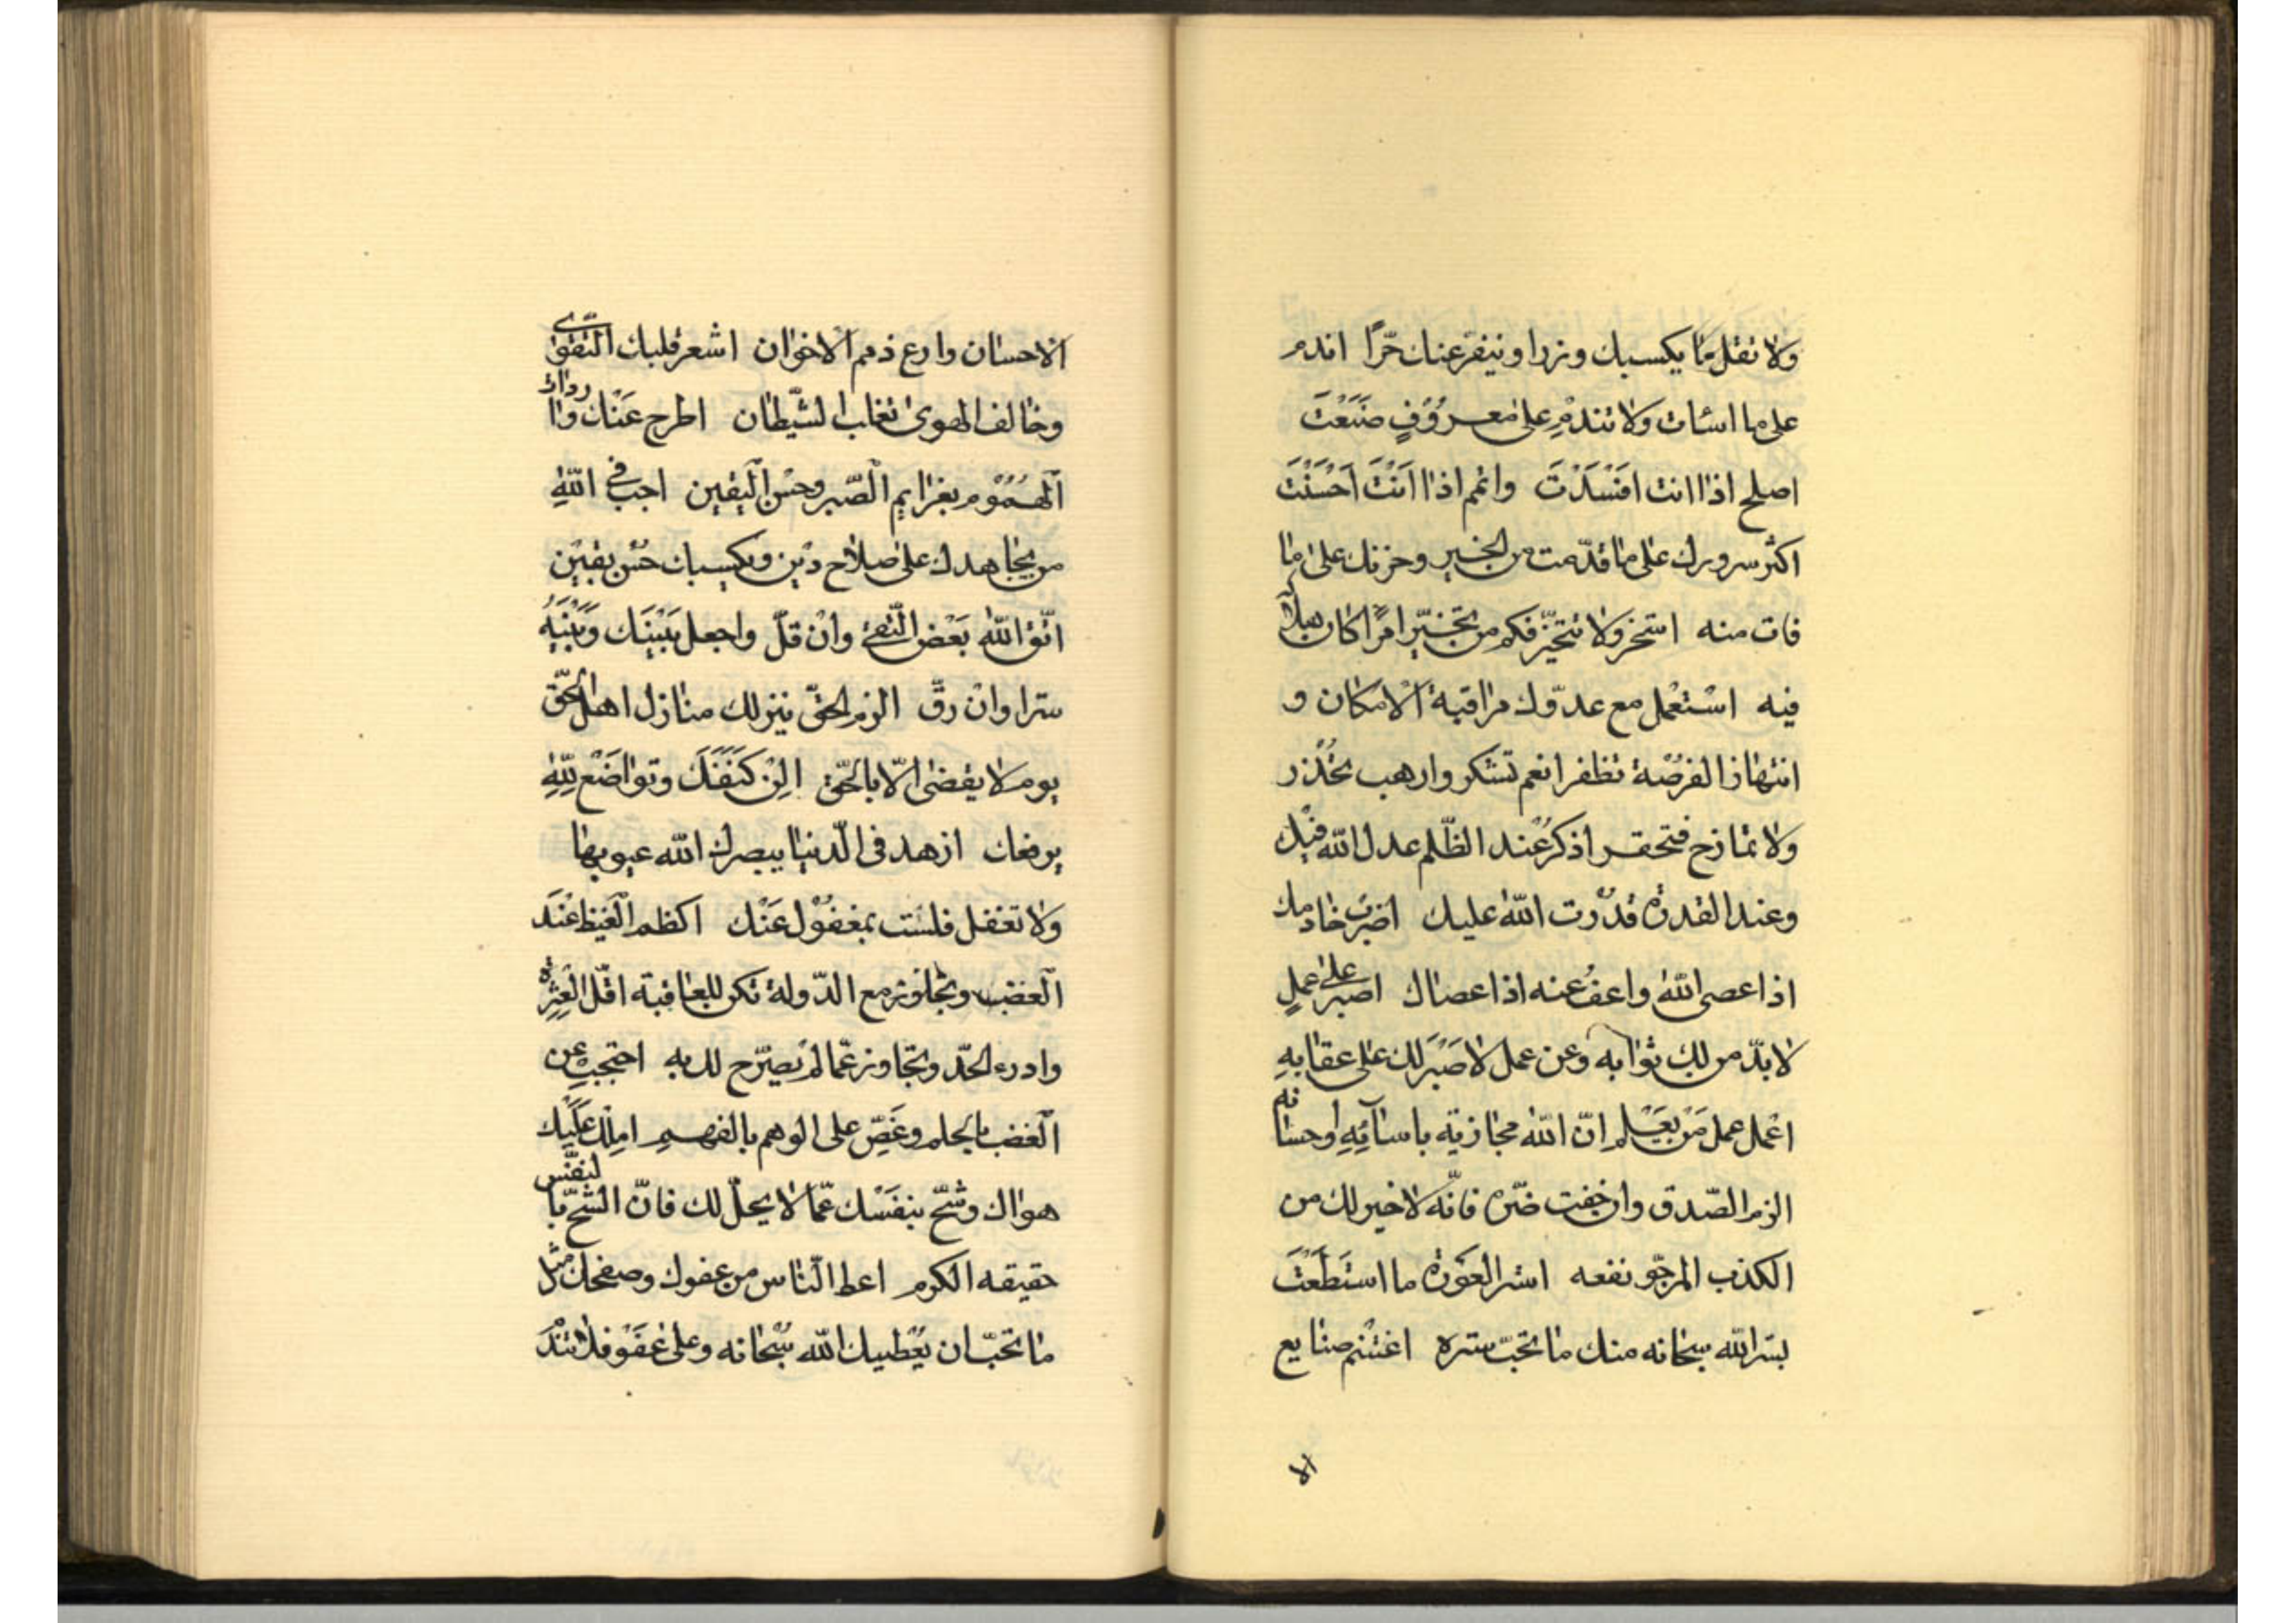 ولا تقل ما يكسبك وزرا وينفر عنك حرّا اندم
على ما اسئات ولا تندم على معروفٍ صنَعْتَ
اصلح اذا انت افسَدْتَ واتمم اذا اَنْتَ اَحْسَنْتَ
اكثر سرورك على ما قدّمت من الخير وحزنك على ما
فات منه استخر ولا تتخيّر فكم من تخيّر امرًا كان هلاكه
فيه استعمل مع عدوّك مراقبة الامكان و
انتهاز الفرصة تظفر انعم تشكر وارهب تحذر
ولا تمازح فتحقر اذكر عند الظّلم عدل الله فيك
وعند القدرة قدرت الله عليك اضرب خادمك
اذا عصى الله واعف عنه اذا عصاك اصبر على عملٍ
لا بدّ من لك ثوابه وعن عمل لا صَبْرَ لك على عقابهِ
اعمل عمل مَنْ يَعْلم انّ الله مجازيه باسآئِهِ واحسانه
الزم الصّدق وان خفت ضرّه فانّه لا خير لك من
الكذب المرجّو نفعه استر العَورة ما استَطَعْتَ
يستر الله سبحانه منك ما تحبّ ستره اغتنم صنايع
الا
الاحسان وارع ذمم الاخوان اشعر قلبك التّقوى
وخالف الهوى تغلب الشّيطان اطرح عَنْك واردات
الهُمُوْم بعزايم الصّبر وحسْن اليقين احب فى اللهِ
من يجاهدك على صلاح دين ويكسبك حُسْن يقين
اتّق الله بَعْض التّقى وانْ قلّ واجعل بَيْنَك وَبَيْنَهُ
سترا وانْ رقّ الزم الحقّ ينزلك منازل اهل الحقّ
يوم لا يقضى الّا بالحقّ الِنْ كَنَفَكَ وتواضَعْ لِلّهِ
يرفعك ازهد فى الدّنيا يبصرك الله عيوبها
ولا تغفل فلسْت بمغفُوْل عَنْك اكظم الغيظ عنْدَ
الغضب وتجاوز مع الدّولة تكن لك العافية اقل العثرة
وادرء الحدّ وتجاوز عمّا لم يصرّح لك به احتجب عن
الغضب بالحلم وغَضِّ على الوهم بالفهم املك عَلَيْك
هواك وشحّ بنفسْك عمّا لا يحلّ لك فانّ الشّحّ بالنفس
حقيقه الكرم اعط النّاس من عفوك وصفحك مثل
ما تحبّ ان يعْطيك الله سبحانه وعلى عَفْو فلا تنْدَ